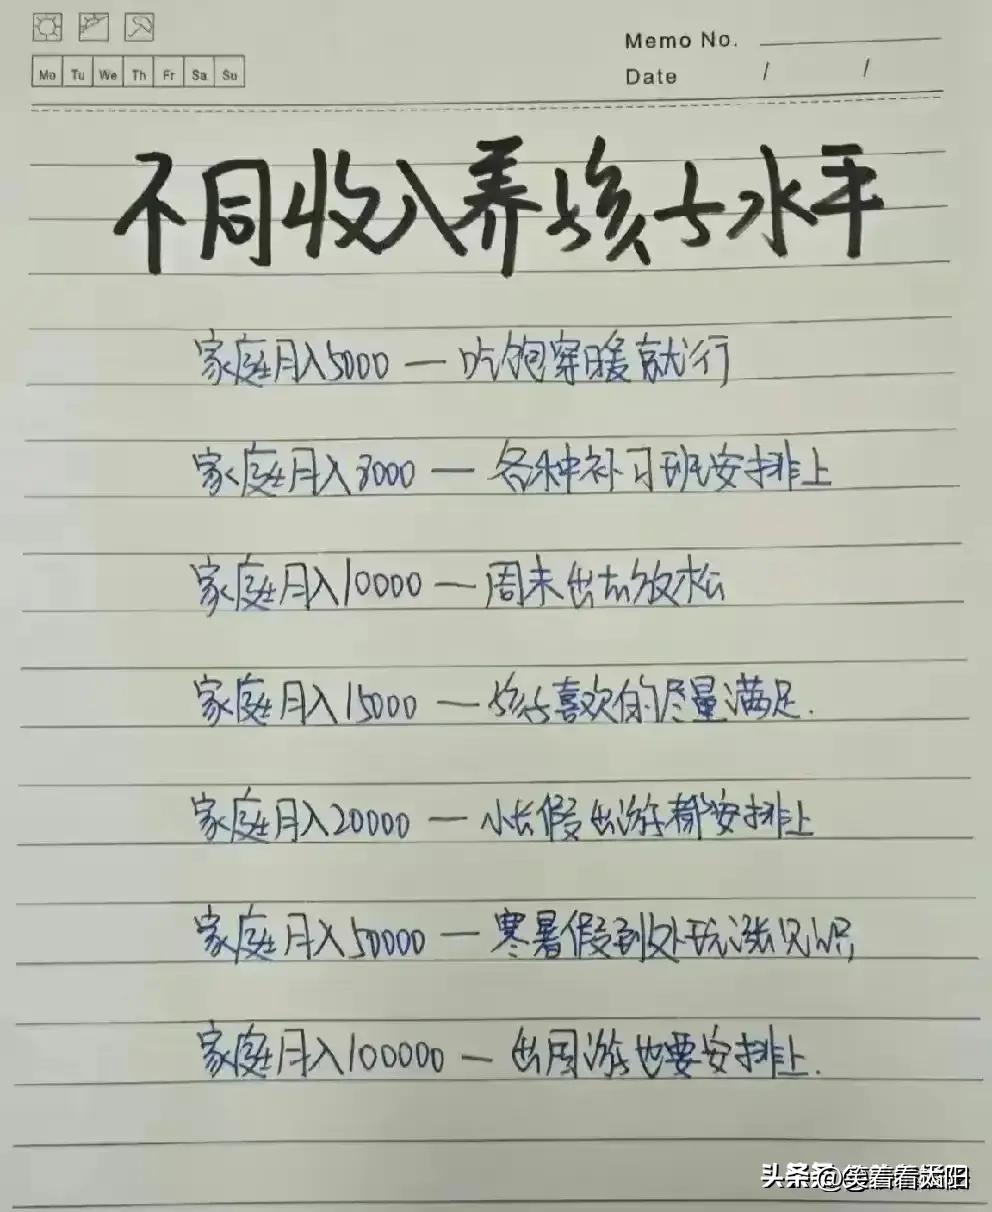 Memo No.
Mo Tu We Th Fr Sa Su
Date / /
不同收入养孩子水平
家庭月入5000 — 吃饱穿暖就行
家庭月入8000 — 各种补习班安排上
家庭月入10000 — 周末出去放松
家庭月入15000 — 孩子喜欢的尽量满足.
家庭月入20000 — 小长假出游都安排上
家庭月入50000 — 寒暑假到处玩涨见识,
家庭月入100000 — 出国游也要安排上.
头条 @笑着看太阳